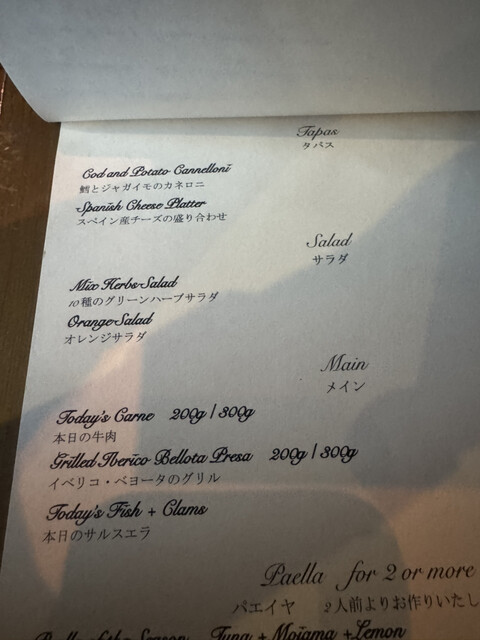 Tapas
タパス
Cod and Potato Cannelloni
鱈とジャガイモのカネロニ
Spanish Cheese Platter
スペイン産チーズの盛り合わせ
Salad
サラダ
Mix Herbs Salad
10種のグリーンハーブサラダ
Orange Salad
オレンジサラダ
Main
メイン
Today's Carne 200g / 300g
本日の牛肉
Grilled Iberico Bellota Presa 200g / 300g
イベリコ・ベヨータのグリル
Today's Fish + Clams
本日のサルスエラ
Paella for 2 or more
パエイヤ 2人前よりお作りいたし
of the Season Tuna + Mojama + Lemon